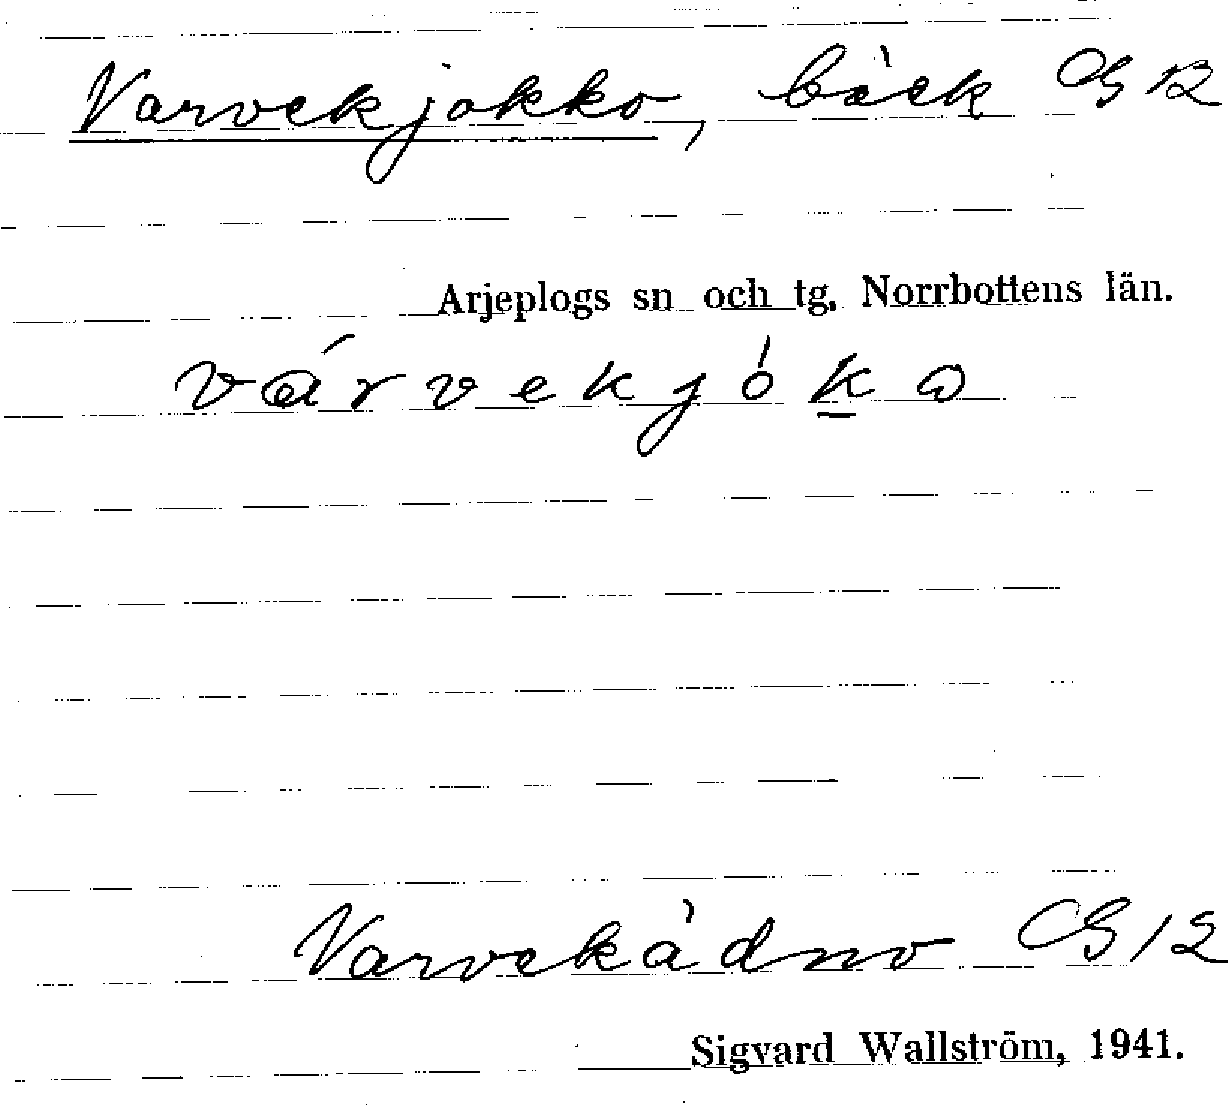 Varvekjokko, bäck GB
Arjeplogs sn och tg. Norrbottens län.
várvekjókɷ
Varvekådno
Sigvard Wallström, 1941.